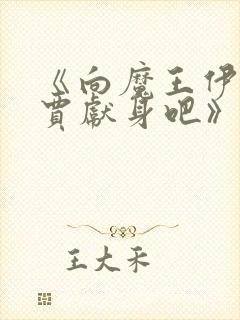 《向魔王伊
贾献身吧》
王大禾